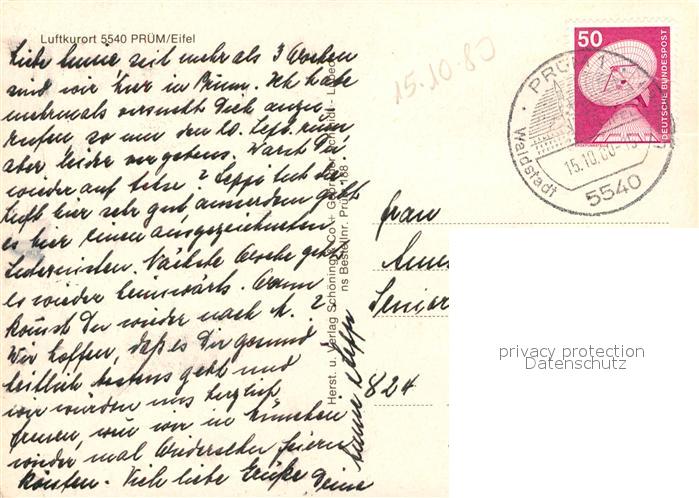 Luftkurort 5540 PRÜM/Eifel
Liebe Annie, seit mehr als 3 Wochen
sind wir hier in Prüm. Ich habe
mehrmals versucht Dich anzu-
rufen so um den 20. Sept. rum
aber leider vergebens. Warst Du
wieder auf Reise? Seppi tut die
Luft hier sehr gut, ausserdem gibt
es hier einen ausgezeichneten
Internisten. Nächste Woche geht
es wieder heimwärts. Wann
kommst Du wieder nach M.?
Wir hoffen, daß es Dir gesund-
heitlich bestens geht und
wir würden uns herzlich
freuen, wenn wir in München
wieder mal Wiedersehn feiern
könnten. Viele liebe Grüße Deine
15.10.80
50
DEUTSCHE BUNDESPOST
PRÜM
15.10.80
Waldstadt
5540
Herst. u. Verlag Schöning & Co + Gebrüder Schmidt - Lübeck
ns Bestellnr. Prüm 168
Frau
Senior
824
privacy protection
Datenschutz